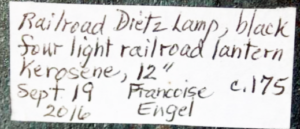 Railroad Dietz Lamp, black
four light railroad lantern
Kerosene, 12"
Sept 19 Francoise c.175
2016 Engel